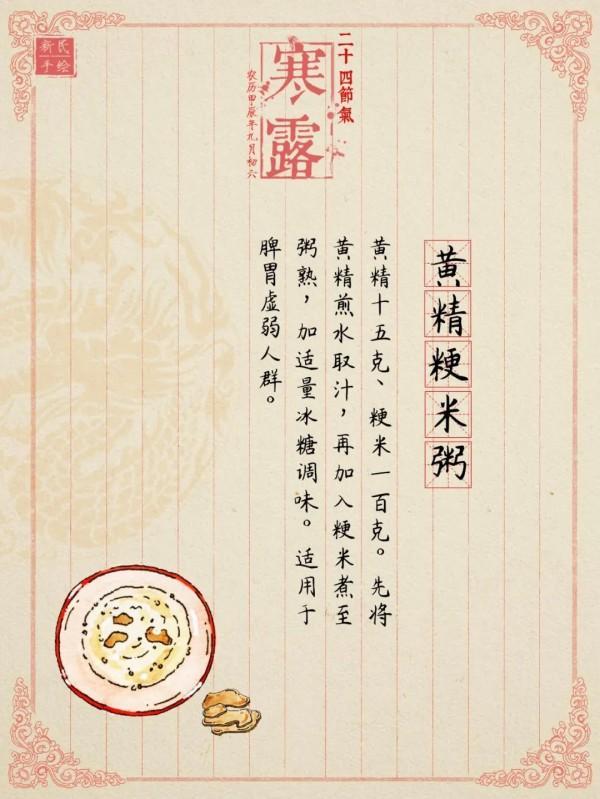 新民
手绘
二十四節氣
寒露
农历甲辰年九月初六
黄精粳米粥
黄精十五克、粳米一百克。先将
黄精煎水取汁，再加入粳米煮至
粥熟，加适量冰糖调味。适用于
脾胃虚弱人群。